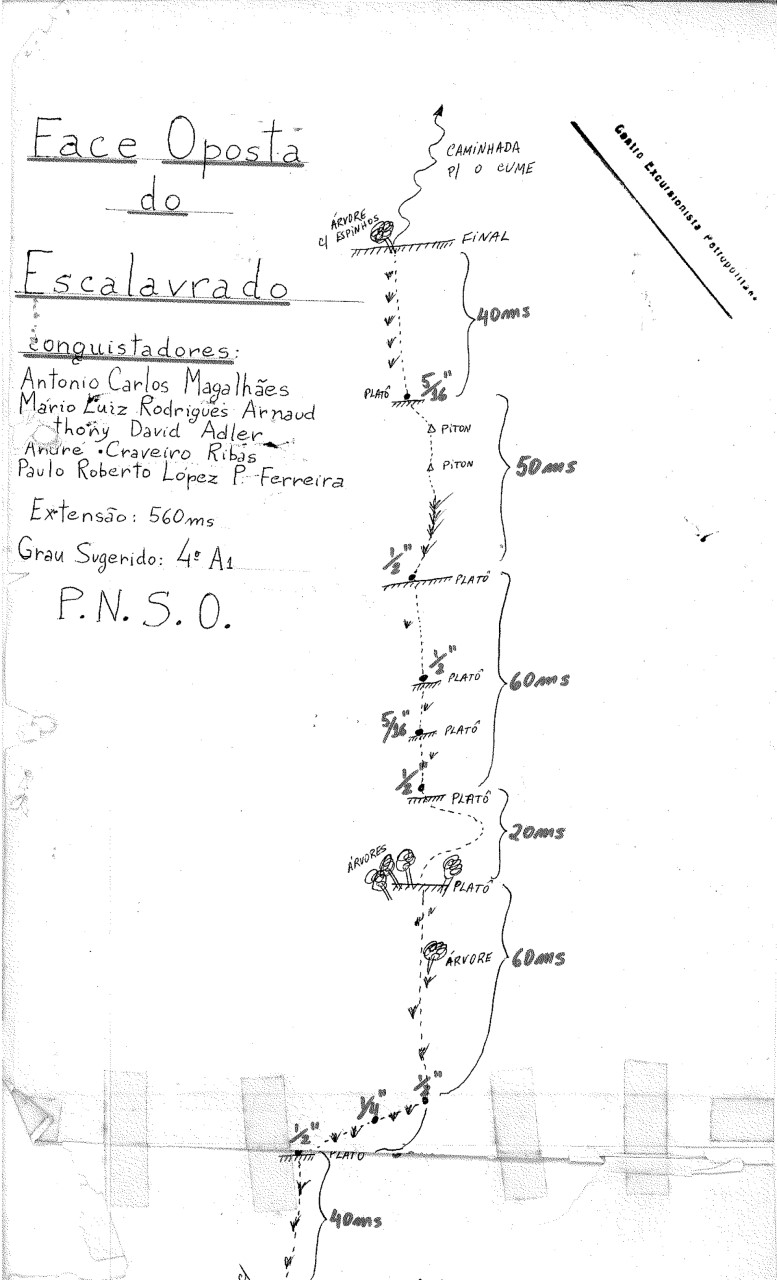 Face Oposta
do
Escalavrado
conquistadores:
Antonio Carlos Magalhães
Mário Luiz Rodrigues Arnaud
thony David Adler
André Craveiro Ribas
Paulo Roberto López P. Ferreira
Extensão: 560ms
Grau Sugerido: 4º A1
P.N.S.O.
Centro Excursionista Metropolitano
CAMINHADA
P/ O CUME
ÁRVORE
C/ ESPINHOS
FINAL
40ms
PLATÔ
5/16"
PITON
PITON
50ms
1/2"
PLATÔ
1/2"
PLATÔ
60ms
5/16"
PLATÔ
1/2"
PLATÔ
20ms
ÁRVORES
PLATÔ
ÁRVORE
60ms
1/2"
1/4"
1/2"
PLATÔ
40ms